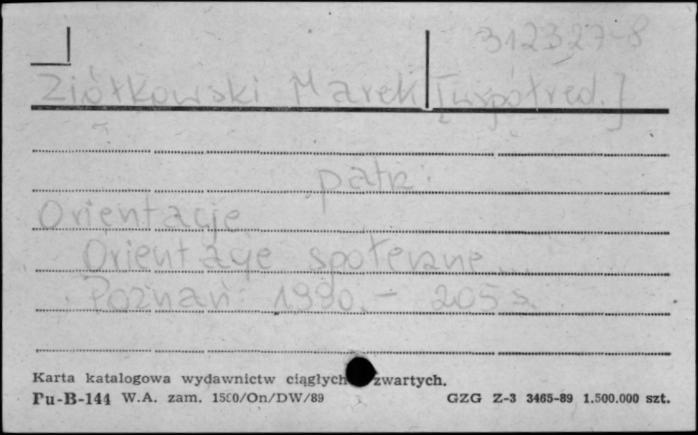 312327-8
Ziółkowski Marek [współred.]
patrz:
Orientacje
Orientacje społeczne...
Poznań 1990.- 205 s.
Karta katalogowa wydawnictw ciągłych zwartych.
Pu-B-144 W.A. zam. 1580/On/DW/89 GZG Z-3 3465-89 1.500.000 szt.